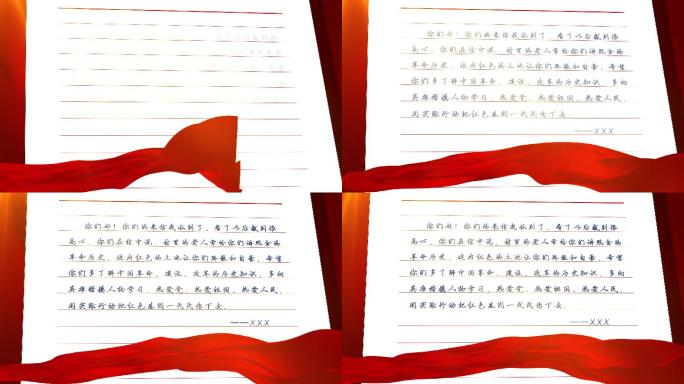 看了以后感到很
你们好！你们的来信我收到了，看了以后感到很
高心，你们在信中说，这里的老人常给你们讲照金的
革命历史，这片红色的土地让你们兴奋和自豪，希望
你们多了解中国革命、建设、改革的历史知识，多向
英雄楷模人物学习，热爱党、热爱祖国、热爱人民，
用实际行动把红色基因一代代传下去。
——XXX
你们好！你们的来信我收到了，看了以后感到很
高心，你们在信中说，这里的老人常给你们讲照金的
革命历史，这片红色的土地让你们兴奋和自豪，希望
你们多了解中国革命、建设、改革的历史知识，多向
英雄楷模人物学习，热爱党、热爱祖国、热爱人民，
用实际行动把红色基因一代代传下去。
——XXX
你们好！你们的来信我收到了，看了以后感到很
高心，你们在信中说，这里的老人常给你们讲照金的
革命历史，这片红色的土地让你们兴奋和自豪，希望
你们多了解中国革命、建设、改革的历史知识，多向
英雄楷模人物学习，热爱党、热爱祖国、热爱人民，
用实际行动把红色基因一代代传下去。
——XXX